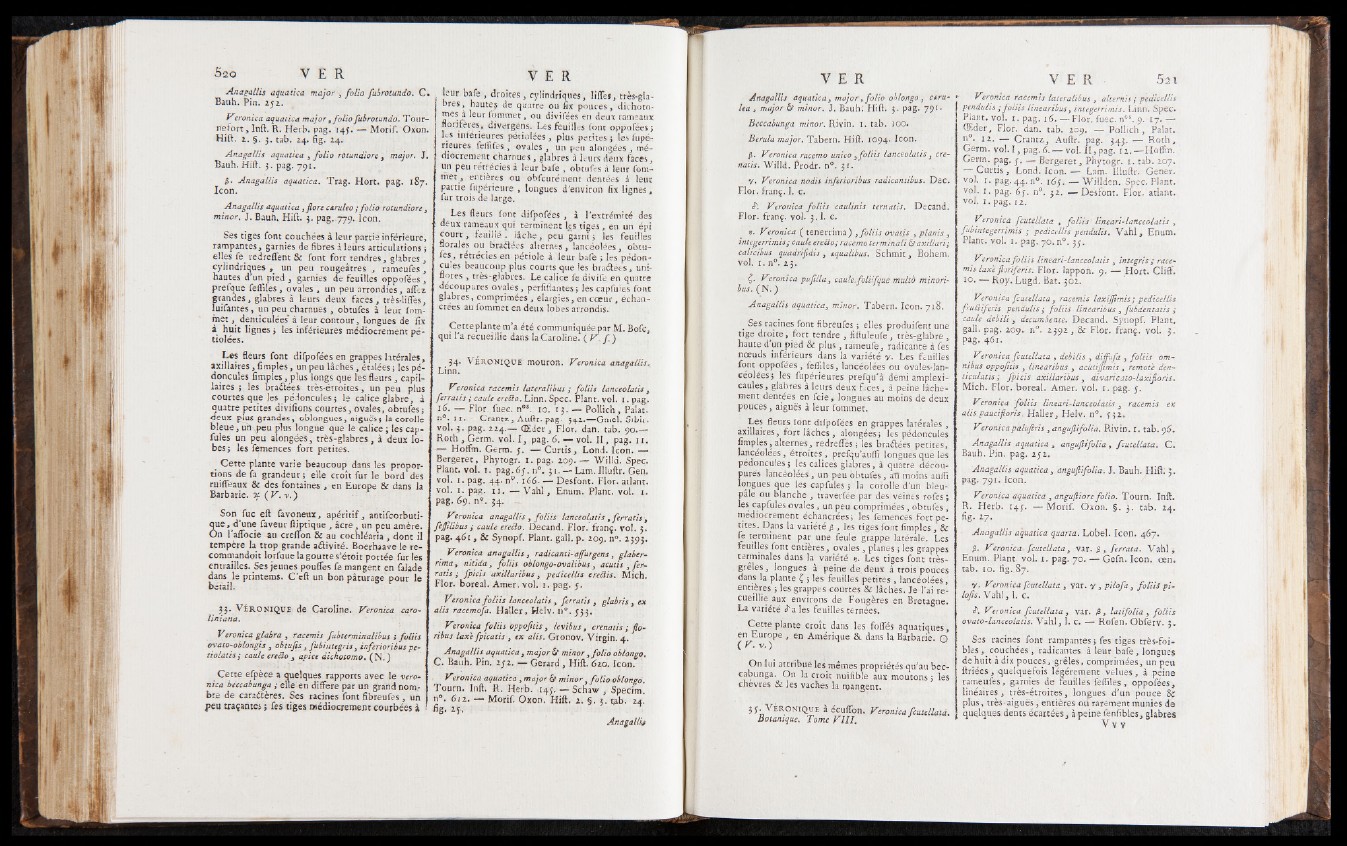 520 V E R
Anagallis aquatica major, folio subrotundo. C.
Bauh. Pin. 252.
Veronica aquatica major, folio subrotundo. Tour-
nefort, Inst. R. Herb. pag. 145. — Moris. Oxon.
Hist. 2. §. 3. tab. 24. fig. 24.
Anagallis aquatica, folio rotundiore, major. J.
Bauh. Hist. 3. pag. 791.
β. Anagallis aquatica. Trag. Hort. pag. 187.
Icon.
Anagallis aquatica, flore cæruleo; folio rotundiore,
minor. J. Bauh. Hist. 3. pag. 779. Icon.
Ses tiges sont couchées à leur partie inférieure,
rampantes, garnies de fibres à leurs articulations;
elles se redressent & sont fort tendres, glabres,
cylindriques, un peu rougeâtres, rameuses,
hautes d'un pied, garnies de feuilles opposées,
presque sessiles, ovales, un peu arrondies, assez
grandes, glabres à leurs deux faces, très-lisses,
luisantes, un peu charnues, obtuses à leur som-
met, denticulées à leur contour, longues de six
à huit lignes; les inférieures médiocrement pé-
tiolées.
Les fleurs sont disposées en grappes latérales,
axillaires, simples, un peu lâches, étalées; les pé-
doncules simples, plus longs que les fleurs, capil-
laires; les bractées très-étroites, un peu plus
courtes que les pédoncules; le calice glabre, à
quatre petites divisions courtes, ovales, obtuses;
deux plus grandes, oblongues, aiguës; la corolle
bleue, un peu plus longue que le calice; les cap-
sules un peu alongées, très-glabres, à deux lo-
bes; les semences fort petites.
Cette plante varie beaucoup dans les propor-
tions de sa grandeur; elle croît sur le bord des
ruisseaux & des fontaines, en Europe & dans la
Barbarie. ♃ (V. v.)
Son suc est savoneux, apéritif, antiscorbuti-
que, d'une saveur stiptique, âcre, un peu amère.
On l'associe au cresson & au cochléaria, dont il
tempère la trop grande activité. Boerhaave le re-
commandoit lorsque la goutte s'étoit portée sur les
entrailles. Ses jeunes pousses se mangent en salade
dans le printems. C'est un bon pâturage pour le
bétail.
33. VÉRONIQUE de Caroline. Veronica caro-
liniana.
Veronica glabra, racemis subterminalibus; foliis
ovato-oblongis, obtusis, subintegris, inferioribus pe-
tiolatis; caule erecto, apice dichotomo. (N.)
Cette espèce a quelques rapports avec le vero-
nica beccabunga; elle en diffère par un grand nom-
bre de caractères. Ses racines sont fibreuses, un
peu traçantes; ses tiges médiocrement courbées à
V E R
leur base, droites, cylindriques, lisses, très-gla-
bres, hautes de quatre ou six pouces, dichoto-
mes à leur sommet, ou divisées en deux rameaux
florifères, divergens. Les feuilles sont opposées;
les inférieures pétiolées, plus petites; les supé-
rieures sessiles, ovales, un peu alongées, mé-
diocrement charnues, glabres à leurs deux faces,
un peu rétrécies à leur base, obtuses à leur som-
met, entières ou obscurément dentées à leur
partie supérieure, longues d'environ six lignes,
sur trois de large.
Les fleurs sont disposées, à l'extrémité des
deux rameaux qui terminent les tiges, en un épi
court, feuillé, lâche, peu garni; les feuilles
florales ou bractées alternes, lancéolées, obtu-
ses, rétrécies en pétiole à leur base; les pédon-
cules beaucoup plus courts que les bractées, uni-
flores, très-glabres. Le calice se divise en quatre
découpures ovales, persistantes; les capsules sont
glabres, comprimées, élargies, en cœur, échan-
crées au sommet en deux lobes arrondis.
Cette plante m'a été communiquée par M. Bosc,
qui l'a recueillie dans la Caroline. (V. s.)
34. VÉRONIQUE mouron. Veronica anagallis.
Linn.
Veronica racemis lateralibus; foliis lanceolatis,
serratis; caule erecto. Linn. Spec. Plant. vol. 1. pag.
16. — Flor. suec. nos. 10. 13. — Pollich, Palat.
n°. 11. — Crantz, Austr. pag. 342. — Gmel. Sibir.
vol. 3. pag. 224. — Œder, Flor. dan. tab. 90. —
Roth, Germ. vol. I, pag. 6. — vol. II, pag. 11.
— Hoffm. Germ. 5. — Curtis, Lond. Icon. —
Bergeret, Phytogr. 1. pag. 209. — Willd. Spec.
Plant. vol. 1. pag. 65. n°. 31. — Lam. Illustr. Gen.
vol. 1. pag. 44. n°. 166. — Desfont. Flor. atlant.
vol. 1. pag. 11. — Vahl, Enum. Plant. vol. 1.
pag. 69. n°. 34.
Veronica anagallis, foliis lanceolatis, serratis,
sessilibus; caule erecto. Decand. Flor. franç. vol. 3.
pag. 461, & Synops. Plant. gall. p. 209. n°. 2393.
Veronica anagallis, radicanti-assurgens, glaber-
rima, nitida, foliis oblongo-ovalibus, acutis, ser-
ratis; spicis axillaribus, pedicellis erectis. Mich.
Flor. boreal. Amer. vol. 1. pag. 5.
Veronica foliis lanceolatis, serratis, glabris, ex
alis racemosa. Haller, Helv. n°. 533.
Veronica foliis oppositis, levibus, crenatis; flo-
ribus laxè spicatis, ex alis. Gronov. Virgin. 4.
Anagallis aquatica, major & minor, folio oblongo.
C. Bauh. Pin. 252. — Gerard, Hist. 620. Icon.
Veronica aquatica, major & minor, folio oblongo.
Tourn. Inst. R. Herb. 145. — Schaw, Specim.
n°. 612. — Moris. Oxon. Hist. 2. §. 3. tab. 24.
fig. 25.
Anagallis
V E R
Anagallis aquatica, major, folio oblongo, cæru-
lea, major & minor. J. Bauh. Hist. 3. pag. 791.
Beccabunga minor. Rivin. 1. tab. 100.
Berula major. Tabern. Hist. 1094. Icon.
β. Veronica racemo unico, foliis lanceolatis, cre-
natis. Willd. Prodr. n°. 31.
γ. Veronica nodis inferioribus radicantibus. Dec.
Flor. franç. l. c.
δ. Veronica foliis caulinis ternatis. Decand.
Flor. franç. vol. 3. l. c.
ε. Veronica (tenerrima), foliis ovatis, planis,
integerrimis; caule erecto; racemo terminali & axillari;
calicibus quadrifidis, æqualibus. Schmit, Bohem.
vol. 1. n°. 23.
ζ. Veronica pusilla; caule foliisque multò minori-
bus. (N.)
Anagallis aquatica, minor. Tabern. Icon. 718.
Ses racines sont fibreuses; elles produisent une
tige droite, fort tendre, fistuleuse, très-glabre,
haute d'un pied & plus, rameuse, radicante à ses
nœuds inférieurs dans la variété γ. Les feuilles
sont opposées, sessiles, lancéolées ou ovales-lan-
céolées; les supérieures presqu'à demi amplexi-
caules, glabres à leurs deux faces, à peine lâche-
ment dentées en scie, longues au moins de deux
pouces, aiguës à leur sommet.
Les fleurs sont disposées en grappes latérales,
axillaires, fort lâches, alongées; les pédoncules
simples, alternes, redressés; les bractées petites,
lancéolées, étroites, presqu'aussi longues que les
pédoncules; les calices glabres, à quatre décou-
pures lancéolées, un peu obtuses, au moins aussi
longues que les capsules; la corolle d'un bleu-
pâle ou blanche, traversée par des veines roses;
les capsules ovales, un peu comprimées, obtuses,
médiocrement échancrées; les semences fort pe-
tites. Dans la variété β, les tiges sont simples, &
se terminent par une seule grappe latérale. Les
feuilles sont entières, ovales, planes; les grappes
terminales dans la variété ε. Les tiges sont très-
grêles, longues à peine de deux à trois pouces
dans la plante ζ; les feuilles petites, lancéolées,
entières; les grappes courtes & lâches. Je l'ai re-
cueillie aux environs de Fougères en Bretagne.
La variété δ a les feuilles ternées.
Cette plante croît dans les fossés aquatiques,
en Europe, en Amérique & dans la Barbarie. ☉
(V. v.)
On lui attribue les mêmes propriétés qu'au bec-
cabunga. On la croit nuisible aux moutons; les
chèvres & les vaches la mangent.
35. VÉRONIQUE à écusson. Veronica scutellata.
Botanique. Tome VIII.
V E R 521
Veronica racemis lateralibus, alternis; pedicellis
pendulis; foliis linearibus, integerrimis. Linn. Spec.
Plant. vol. 1. pag. 16. — Flor. suec. nos. 9. 17. —
Œder, Flor. dan. tab. 209. — Pollich, Palat.
n°. 12. — Crantz, Austr. pag. 343. — Roth,
Germ. vol. I, pag. 6. — vol. II, pag. 12. — Hoffm.
Germ. pag. 5. — Bergeret, Phytogr. 1. tab. 207.
— Curtis, Lond. Icon. — Lam. Illustr. Gener.
vol. 1. pag. 44. n°. 165. — Willden. Spec. Plant.
vol. 1. pag. 65. n°. 32. — Desfont. Flor. atlant.
vol. 1. pag. 12.
Veronica scutellata, foliis lineari-lanceolatis,
subintegerrimis; pedicellis pendulis. Vahl, Enum.
Plant. vol. 1. pag. 70. n°. 35.
Veronica foliis lineari-lanceolatis, integris; race-
mis laxè floriferis. Flor. lappon. 9. — Hort. Cliff.
10. — Roy. Lugd. Bat. 302.
Veronica scutellata, racemis laxissimis; pedicellis
fructiferis pendulis; foliis linearibus, subdentatis;
caule debili, decumbente. Decand. Synops. Plant.
gall. pag. 209. n°. 2392, & Flor. franç. vol. 3.
pag. 461.
Veronica scutellata, debilis, diffusa, foliis om-
nibus oppositis, linearibus, acutissimis, remotè den-
ticulatis; spicis axillaribus, divaricato-laxifloris.
Mich. Flor. boreal. Amer. vol. 1. pag. 5.
Veronica foliis lineari-lanceolatis, racemis ex
alis paucifloris. Haller, Helv. n°. 532.
Veronica palustris, angustifolia. Rivin. t. tab. 96.
Anagallis aquatica, angustifolia, scutellata. C.
Bauh. Pin. pag. 252.
Anagallis aquatica, angustifolia. J. Bauh. Hist. 3.
pag. 791. Icon.
Veronica aquatica, angustiore folio. Tourn. Inst.
R. Herb. 145. — Moris. Oxon. §. 3. tab. 24.
fig. 27.
Anagallis aquatica quarta. Lobel. Icon. 467.
β. Veronica scutellata, var. β, serrata. Vahl,
Enum. Plant. vol. 1. pag. 70. — Gesn. Icon. æn.
tab. 10. fig. 87.
γ. Veronica scutellata, var. γ, pilosa, foliis pi-
losis. Vahl, l. c.
δ. Veronica scutellata, var. β, latifolia, foliis
ovato-lanceolatis. Vahl, l. c. — Rosen. Observ. 3.
Ses racines sont rampantes; ses tiges très-foi-
bles, couchées, radicantes à leur base, longues
de huit à dix pouces, grêles, comprimées, un peu
striées, quelquefois légérement velues, à peine
rameuses, garnies de feuilles sessiles, opposées,
linéaires, très-étroites, longues d'un pouce &
plus, très-aiguës, entières ou rarement munies de
quelques dents écartées, à peine sensibles, glabres
V v v